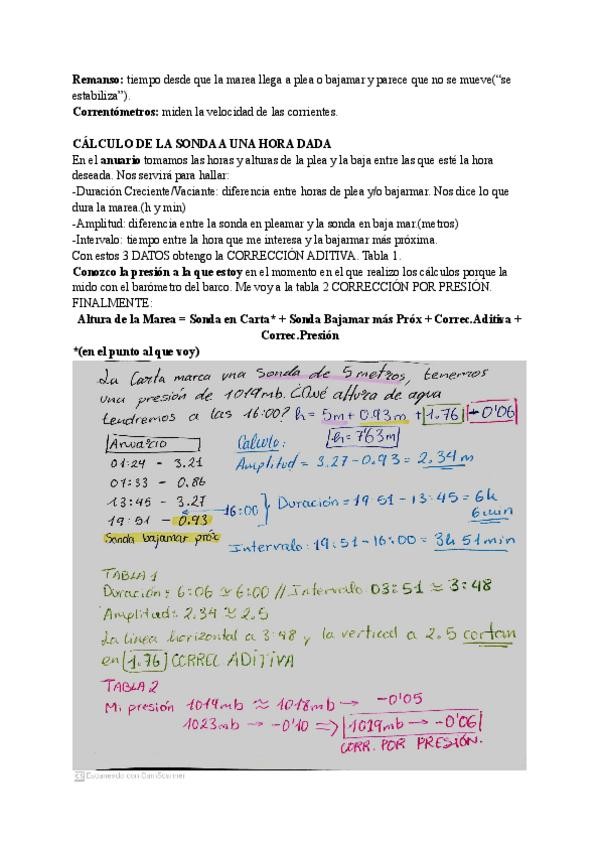 Remanso: tiempo desde que la marea llega a plea o bajamar y parece que no se mueve(“se
estabiliza”).
Correntómetros: miden la velocidad de las corrientes.
CÁLCULO DE LA SONDA A UNA HORA DADA
En el anuario tomamos las horas y alturas de la plea y la baja entre las que esté la hora
deseada. Nos servirá para hallar:
-Duración Creciente/Vaciante: diferencia entre horas de plea y/o bajarmar. Nos dice lo que
dura la marea.(h y min)
-Amplitud: diferencia entre la sonda en pleamar y la sonda en baja mar.(metros)
-Intervalo: tiempo entre la hora que me interesa y la bajarmar más próxima.
Con estos 3 DATOS obtengo la CORRECCIÓN ADITIVA. Tabla 1.
Conozco la presión a la que estoy en el momento en el que realizo los cálculos porque la
mido con el barómetro del barco. Me voy a la tabla 2 CORRECCIÓN POR PRESIÓN.
FINALMENTE:
Altura de la Marea = Sonda en Carta* + Sonda Bajamar más Próx + Correc.Aditiva +
Correc.Presión
*(en el punto al que voy)
La Carta marca una sonda de 5 metros, tenemos
una presión de 1019mb. ¿Qué altura de agua
tendremos a las 16:00? h = 5m + 0.93m + 1.76 - 0'06
Anuario Calculo: h = 7'63m
01:24 - 3.21 Amplitud = 3.27 - 0.93 = 2.34m
01:33 - 0.86
13:45 - 3.27 16:00 Duración = 19:51 - 13:45 = 6h
19:51 - 0.93 6min
Sonda bajamar próx Intervalo: 19:51 - 16:00 = 3h 51min
TABLA 1
Duración: 6:06 ≃ 6:00 // Intervalo 03:51 ≃ 3:48
Amplitud: 2.34 ≃ 2.5
La línea horizontal a 3:48 y la vertical a 2.5 cortan
en 1.76 CORREC ADITIVA
TABLA 2
Mi presión 1019mb ≈ 1018mb → -0'05
1023mb → -0'10 ⇒ 1019mb → -0'06
CORR. POR PRESIÓN.
Escaneado con CamScanner